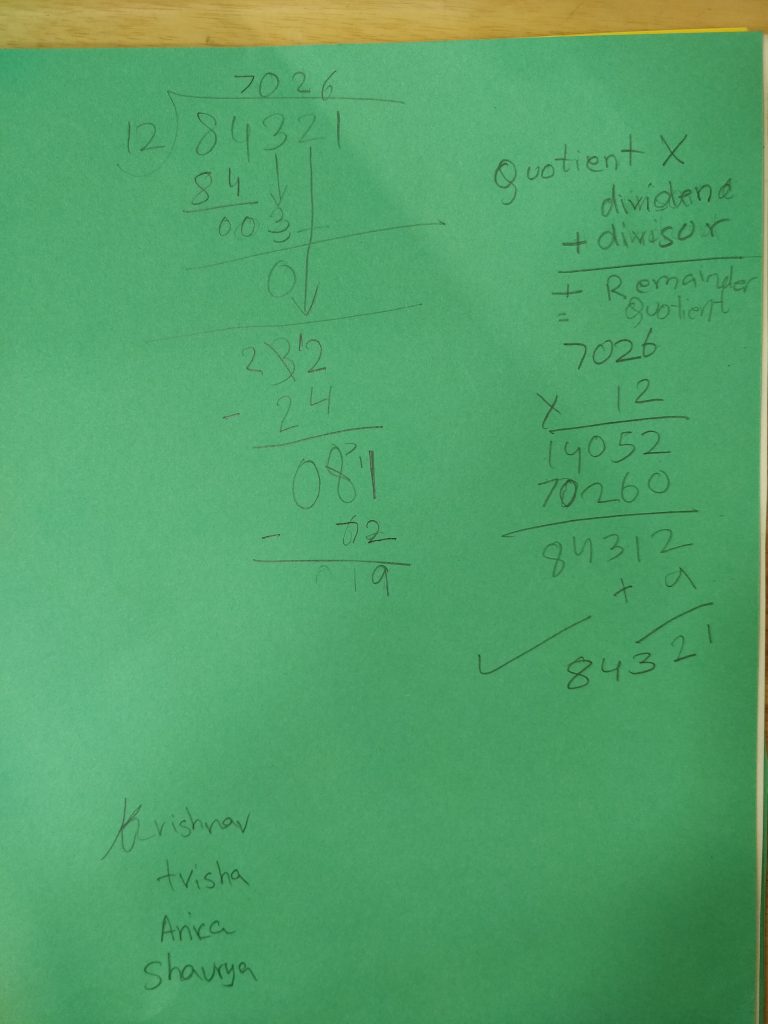 7026
12)84321
84
003
0
232
- 24
081
- 72
019
Quotient X
dividend
+ divisor
+ Remainder
= Quotient
7026
X 12
14052
70260
84312
+ 9
✓ 84321
Krishnav
trisha
Anika
Shaurya